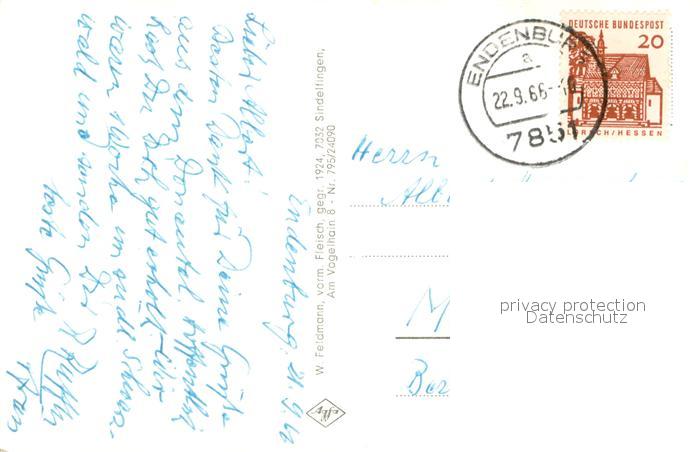 Endenburg, 21.9.66
Lieber Albert!
Besten Dank für Deine Grüße
aus dem Donautal. Hoffentlich
hast Du Dich gut erholt. Wir
waren 1 Woche im südl. Schwarz-
wald und senden Dir
beste Grüße
W. Feldmann, vorm. Fleisch, gegr. 1924, 7032 Sindelfingen,
Am Vogelhain 8 - Nr. 795/24090
ENDENBURG
a
22.9.66-10
7851
DEUTSCHE BUNDESPOST
20
LORSCH/HESSEN
Herrn
Alb
M
Ber
privacy protection
Datenschutz